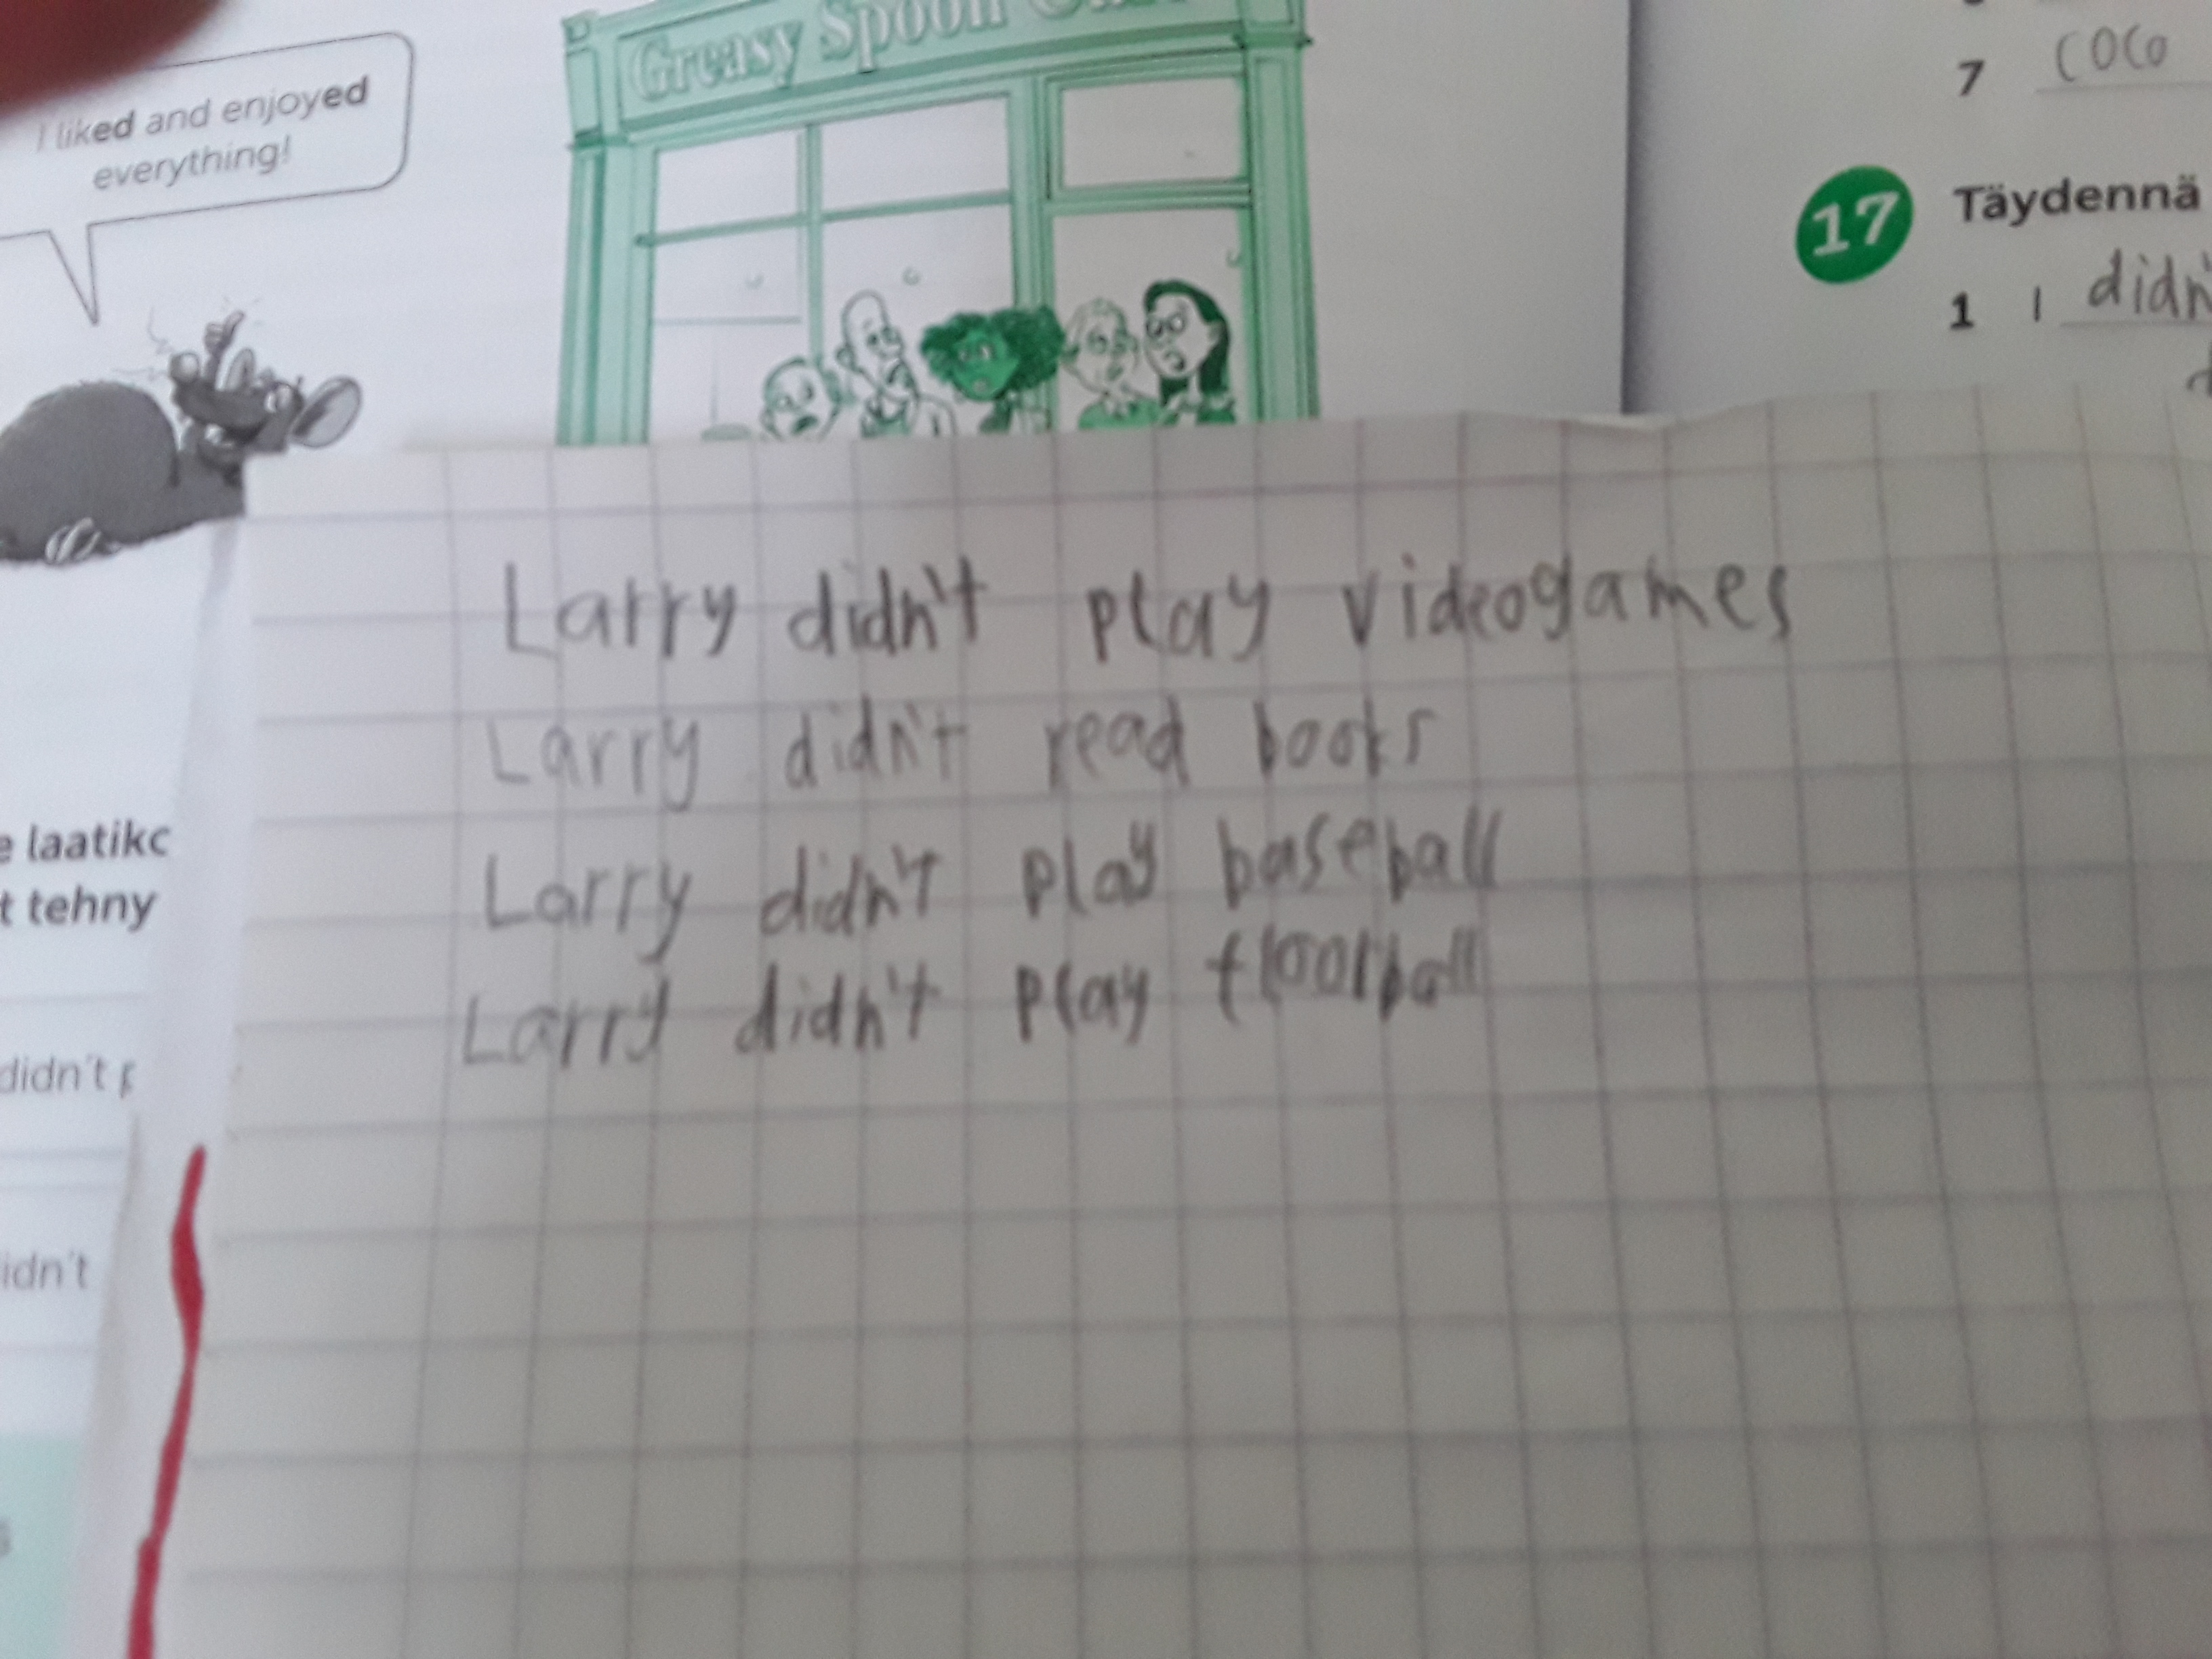 Greasy Spoon
I liked and enjoyed
everything!
7 Coco
17 Täydennä
1 I didn'
Larry didn't play videogames
Larry didn't read books
Larry didn't play baseball
Larry didn't play floorball
e laatikc
t tehny
didn't p
idn't